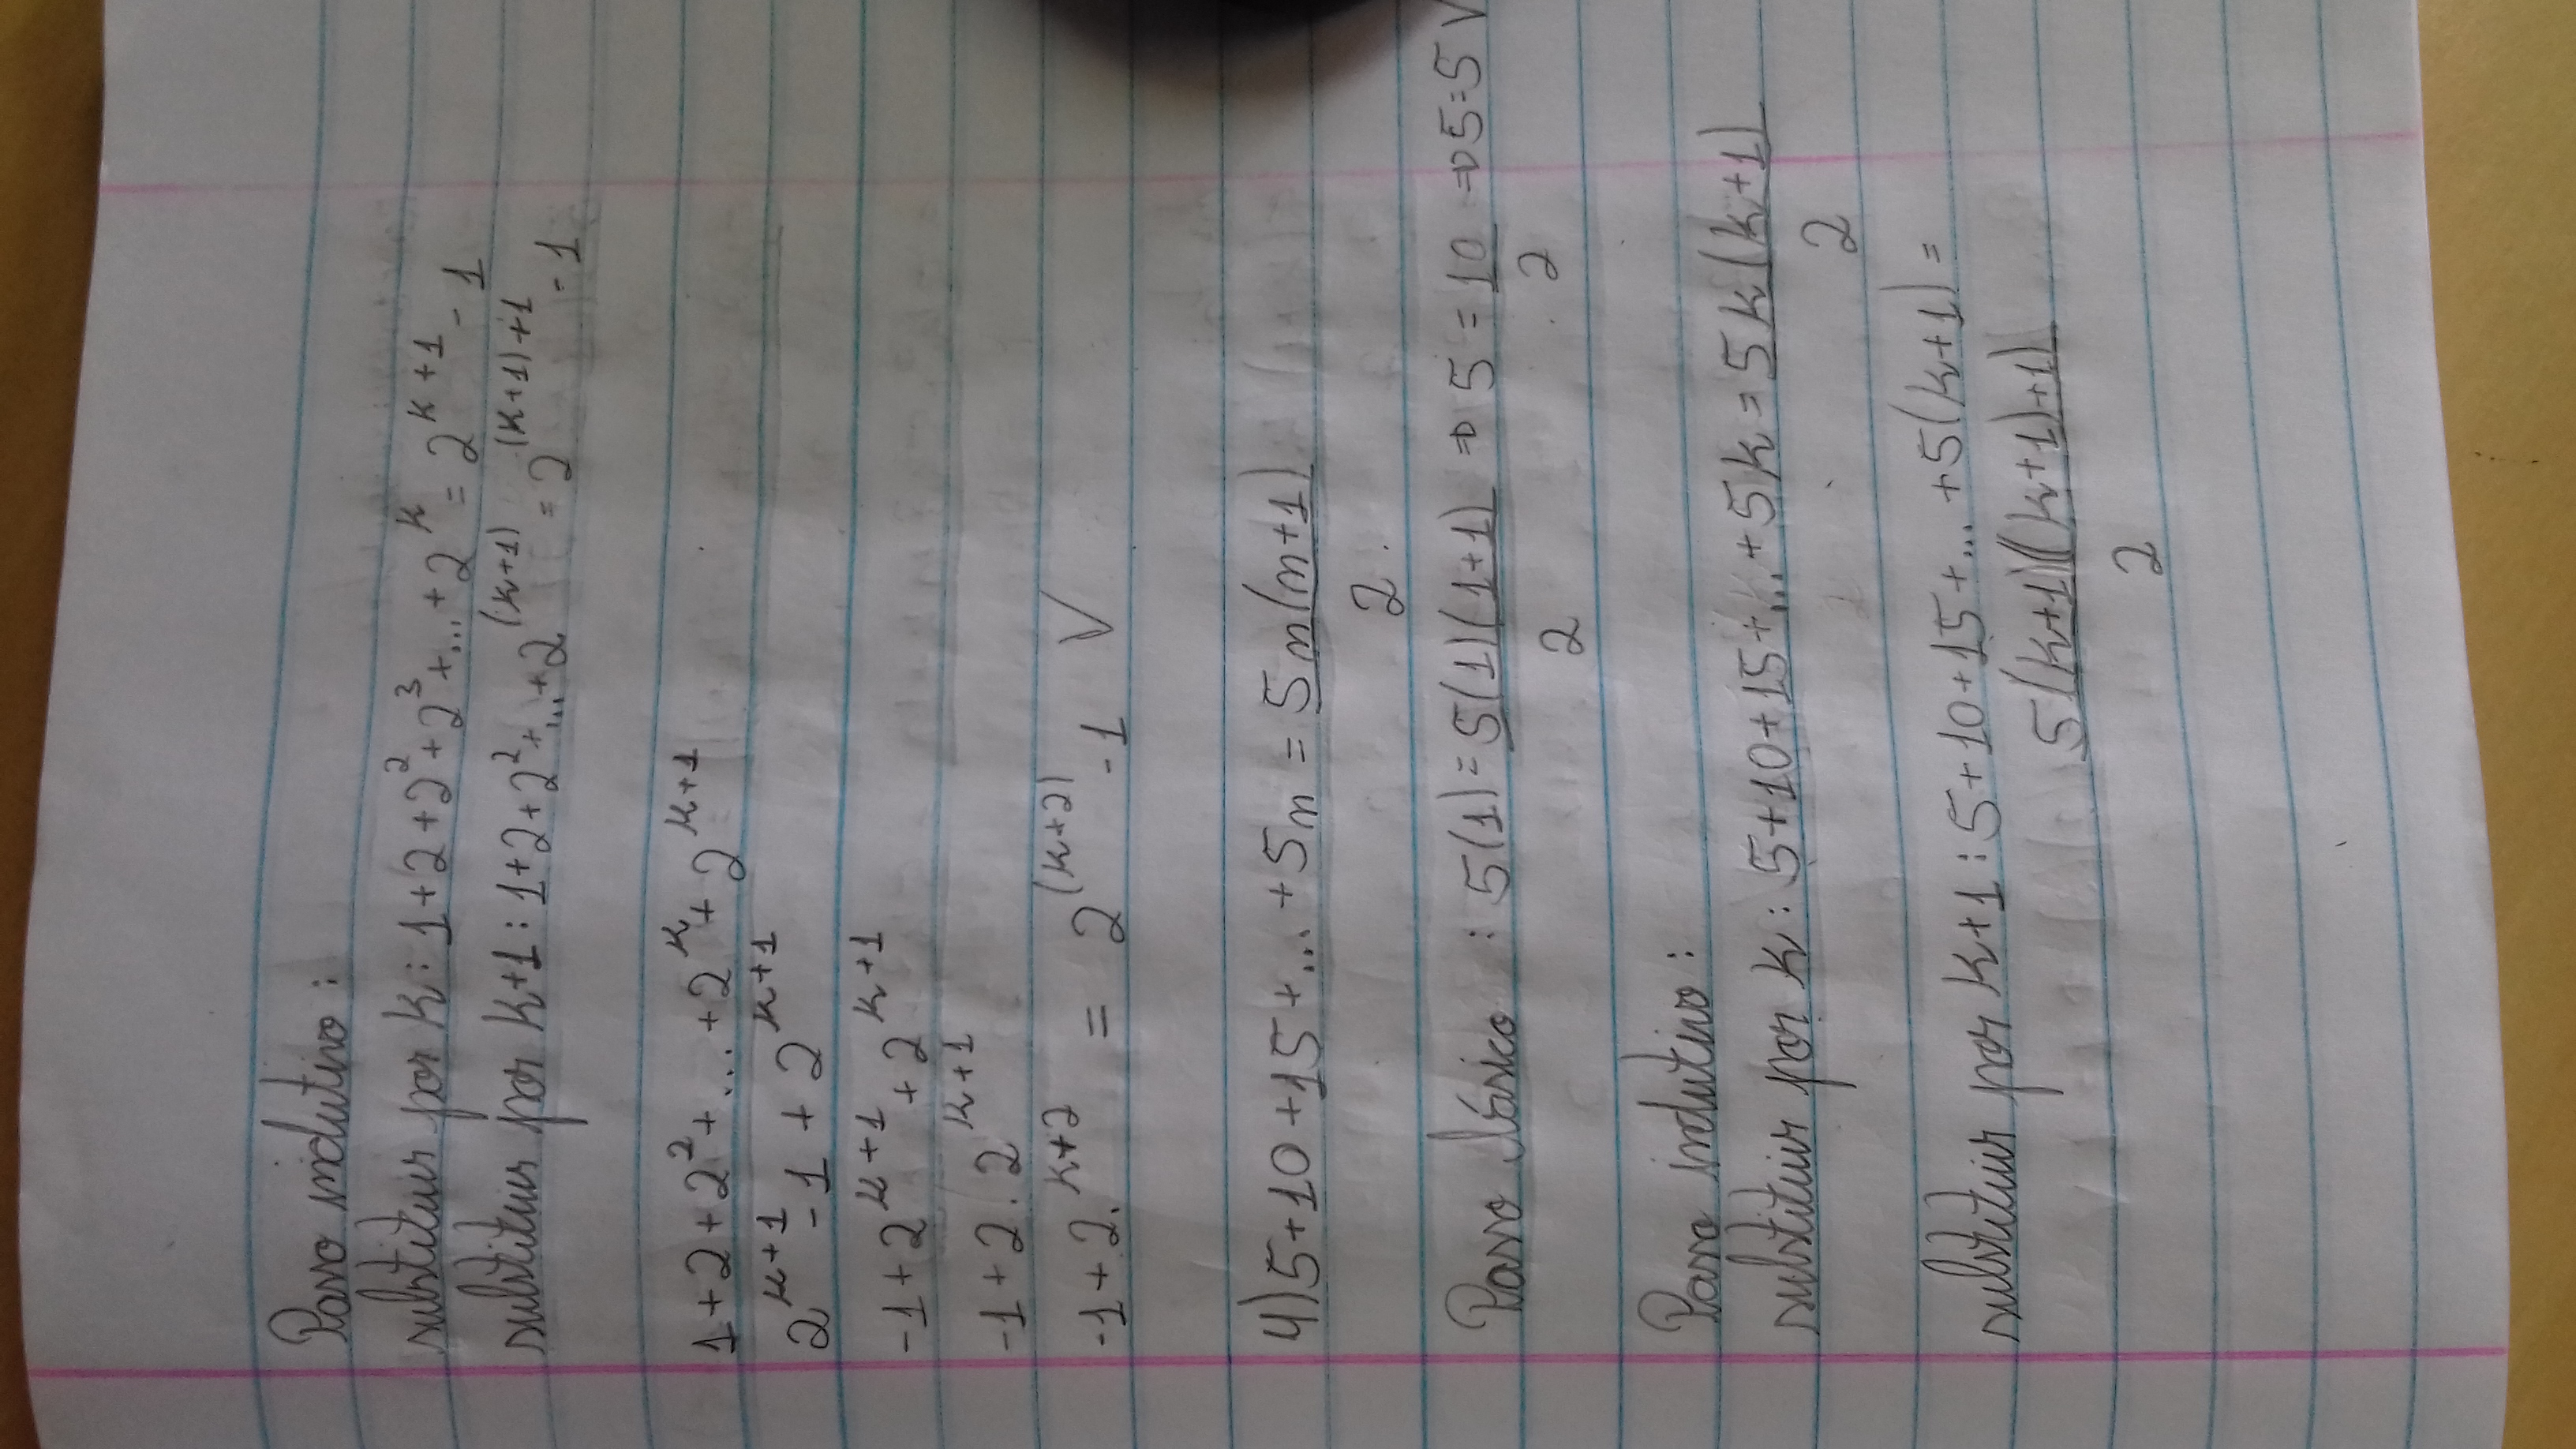 Passo indutivo:
substituir por k: 1+2+2²+2³+...+2^k = 2^(k+1) - 1
substituir por k+1: 1+2+2²+...+2^(k+1) = 2^((k+1)+1) - 1
1+2+2²+...+2^k+2^(k+1)
2^(k+1) - 1 + 2^(k+1)
-1+2^(k+1)+2^(k+1)
-1+2.2^(k+1)
-1+2.^(k+2) = 2^(k+2) - 1 V
4) 5+10+15+...+5n = 5n(n+1)/2
Passo básico: 5(1) = 5(1)(1+1)/2 => 5 = 10/2 => 5=5 V
Passo indutivo:
substituir por k: 5+10+15+...+5k = 5k(k+1)/2
substituir por k+1: 5+10+15+...+5(k+1) =
5(k+1)((k+1)+1)/2